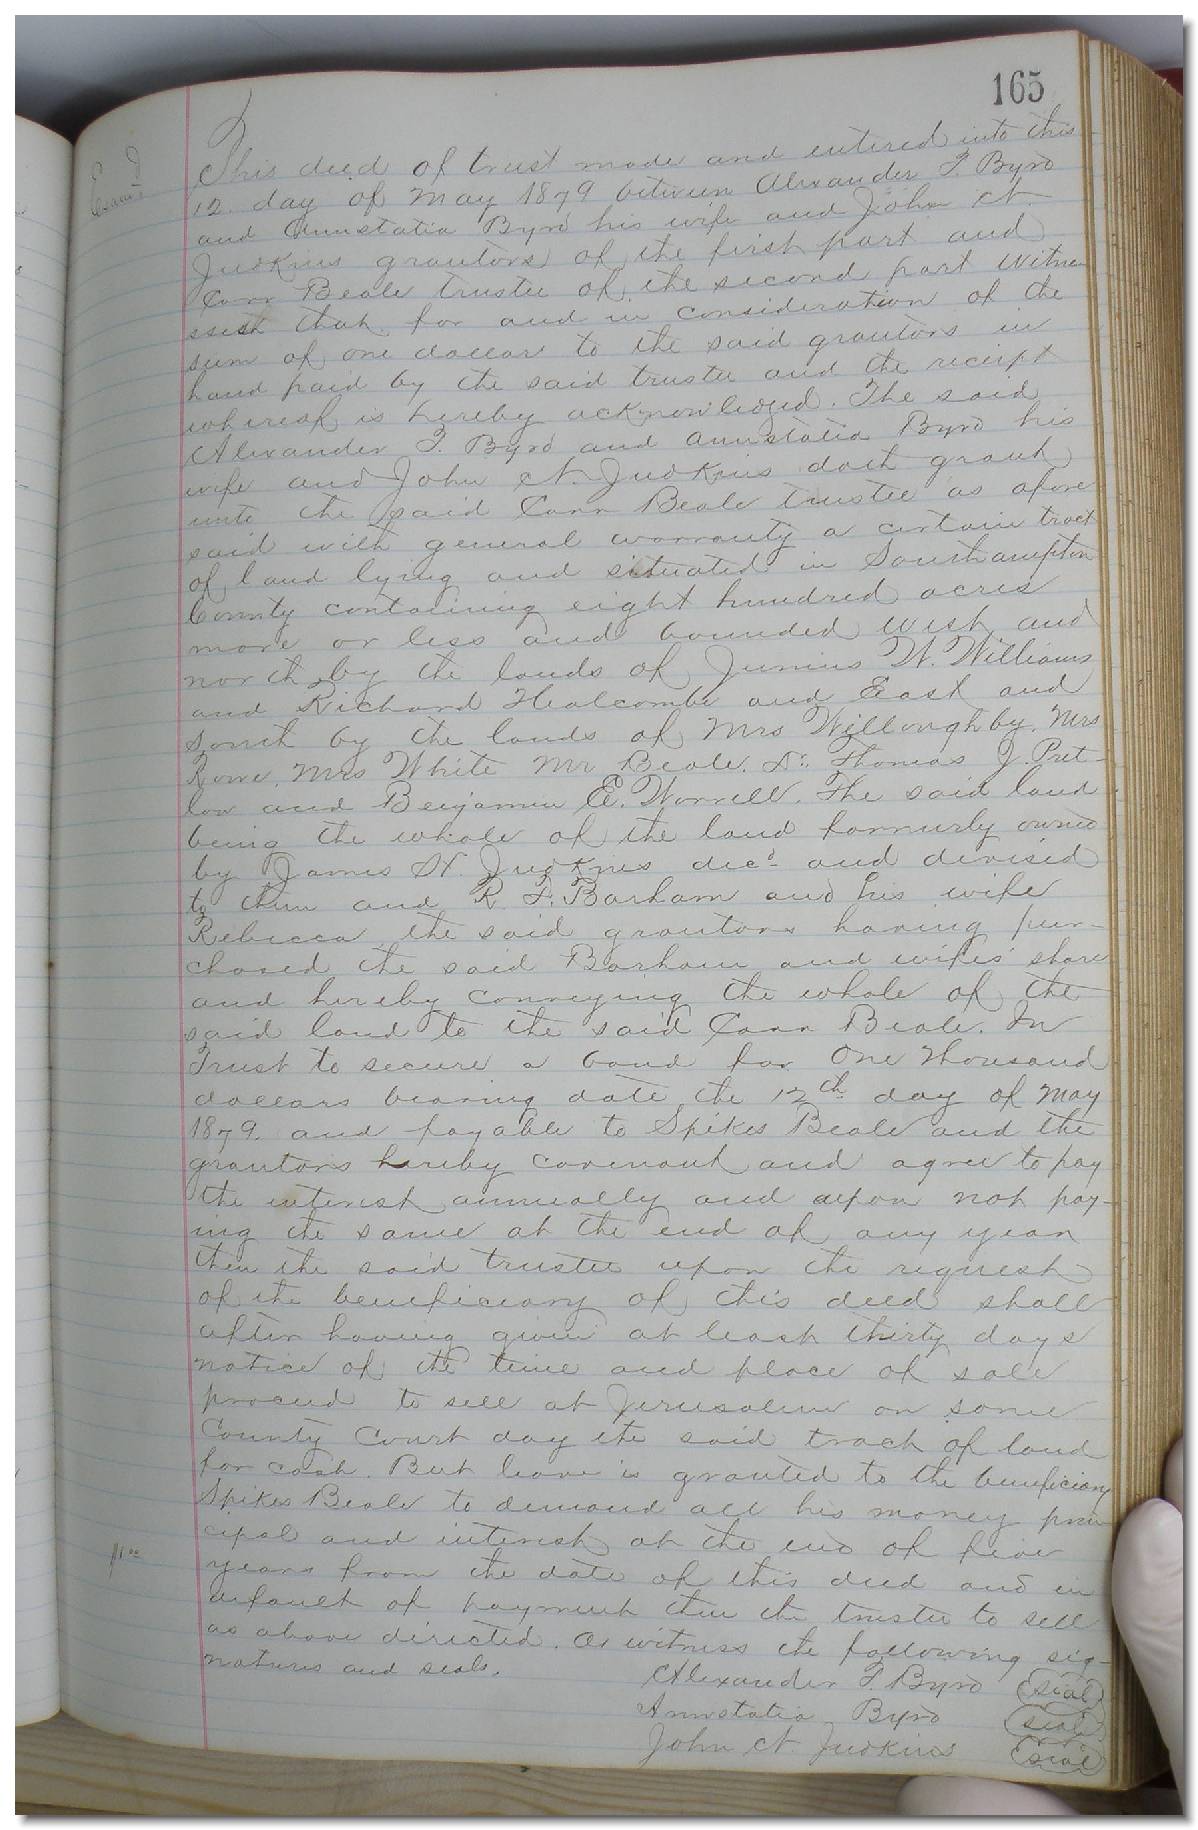 165
Exam'd
This deed of trust made and entered into this
12 day of May 1879 between Alexander F. Byrd
and Annstatia Byrd his wife and John N.
Judkins grantors of the first part and
Carr Beale trustee of the second part Witne
sseth that for and in consideration of the
sum of one dollar to the said grantors in
hand paid by the said trustee and the receipt
whereof is hereby acknowledged. The said
Alexander F. Byrd and Annstatia Byrd his
wife and John N. Judkins doth grant
unto the said Carr Beale trustee as afore
said with general warranty a certain tract
of land lying and situated in Southampton
County containing eight hundred acres
more or less and bounded West and
north by the lands of Junius W. Williams
and Richard Healcombe and East and
South by the lands of Mrs Willoughby, Mrs
Rowe, Mrs White Mr Beale, Dr. Thomas J. Pret-
low and Benjamin E. Worrell. The said land
being the whole of the land formerly owned
by James N. Judkins decd and devised
to them and R. F. Barham and his wife
Rebecca, the said grantors having pur-
chased the said Barham and wifes' share
and hereby conveying the whole of the
said land to the said Carr Beale. In
Trust to secure a bond for One Thousand
dollars bearing date the 12th day of May
1879. and payable to Spikes Beale and the
grantors hereby covenant and agree to pay
the interest annually and upon not pay-
ing the same at the end of any year
then the said trustee upon the request
of the beneficiary of this deed shall
after having given at least thirty days
notice of the time and place of sale
proceed to sell at Jerusalem on some
County Court day the said tract of land
for cash. But leave is granted to the beneficiary
Spikes Beale to demand all his money prin
cipal and interest at the end of five
years from the date of this deed and in
default of payment then the trustee to sell
as above directed. As witness the following sig-
natures and seals.
Alexander F. Byrd (seal)
Annstatia Byrd (seal)
John N. Judkins (seal)